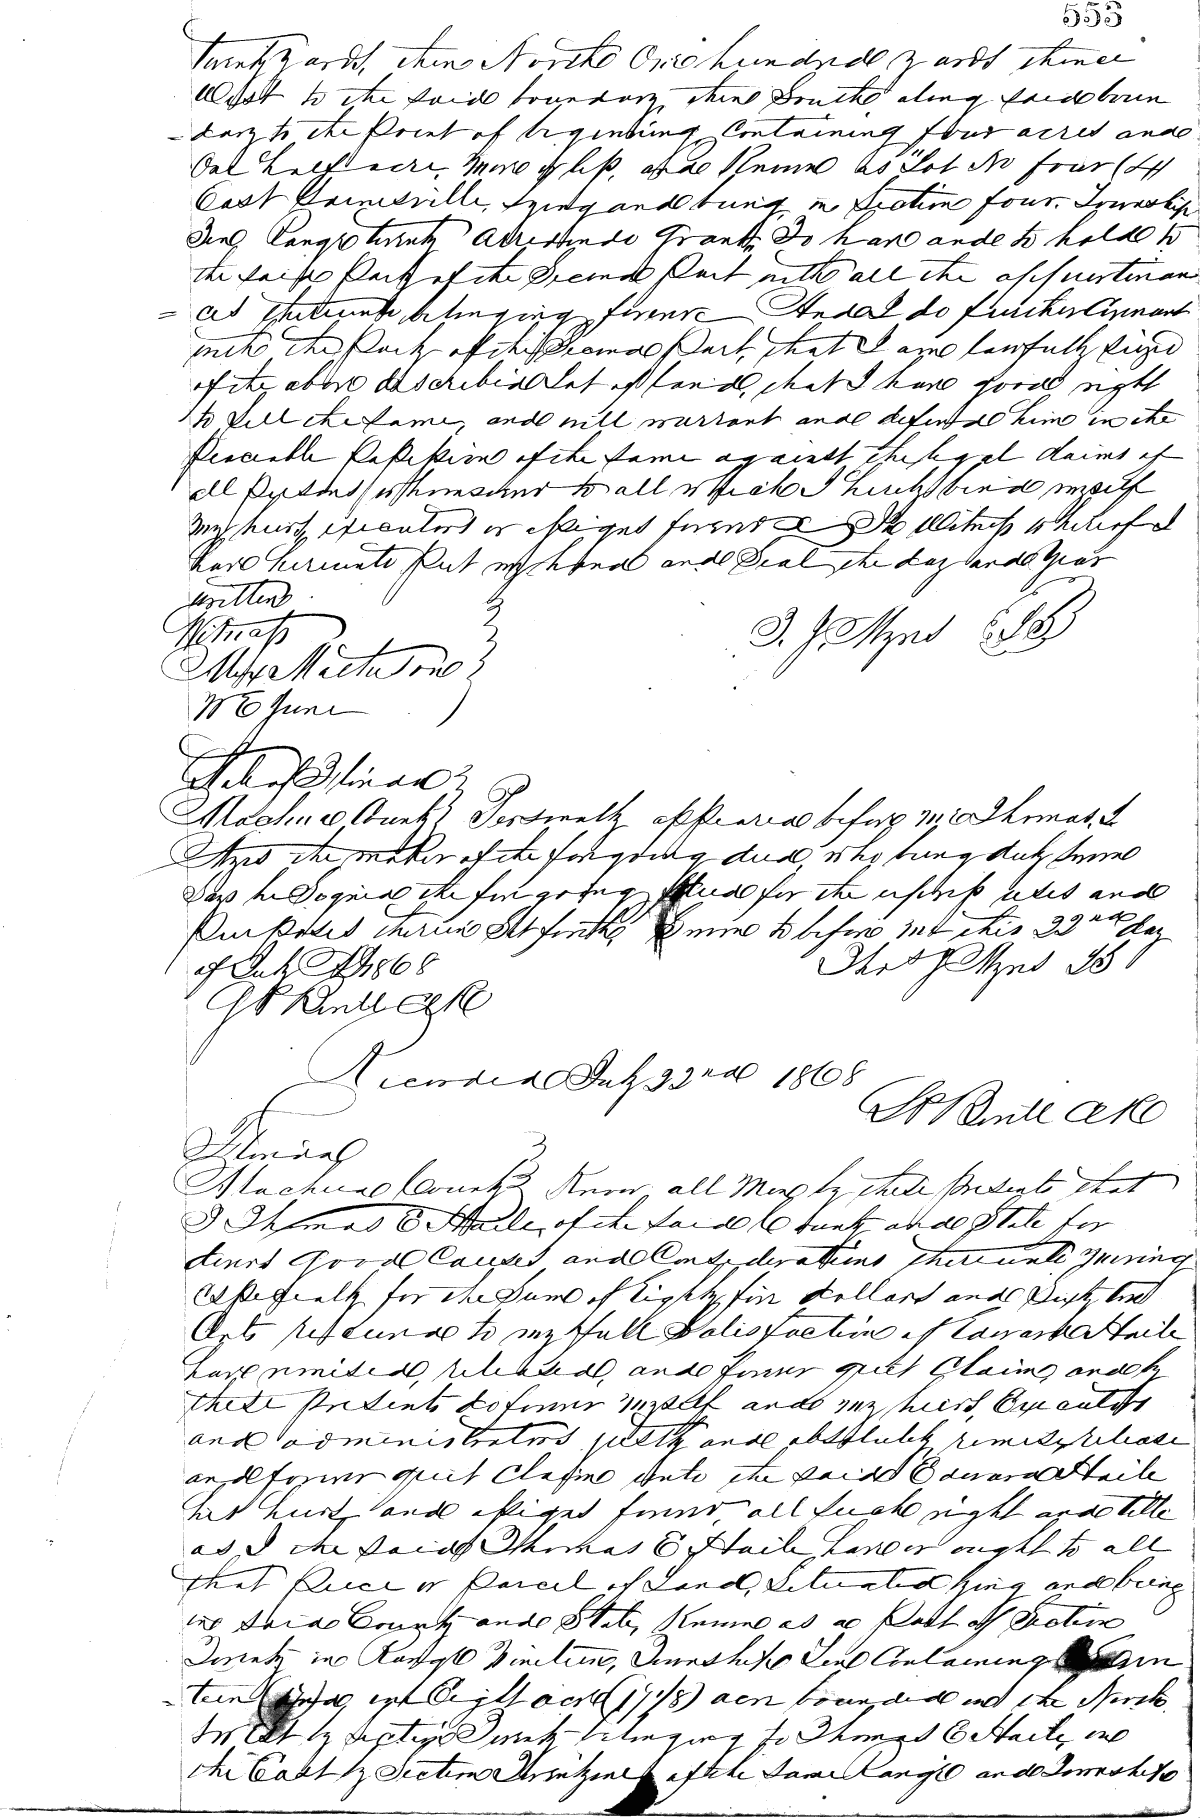 553
twenty yards, then North One hundred yards thence
West to the said boundary, then South along said boun
dary to the Point of beginning Containing four acres and
One half acre, More or less, and Known as Lot No four (4)
East Gainesville, Lying and being in Section four. Township
Ten, Range twenty Arredondo Grant, To have and to hold to
the said Party of the Second Part with all the appurtinan
ces thereunto belonging forever And I do further Covenant
with the Party of the Second Part, that I am lawfully Seized
of the above described Lot of land, that I have good right
to Sell the same, and will warrant and defend him in the
Peaceable Possession of the same against the legal claims of
all Persons whomsoever to all which I hereby bind myself
My heirs, executors or assigns forever In Witness whereof I
have hereunto Put my hand and Seal the day and Year
written
Witness
T. J. Myrs LS
Max
W E June
State of Florida
Alachua County Personally appeared before me Thomas J
the maker of the forgoing deed, who being duly Sworn
Says he Signed the forgoing deed for the express uses and
Purposes therein Set forth, Sworn to before me this 22nd day
of July AD 1868
Thos J Myrs LS
Recorded July 22nd 1868
Florida
Alachua County Know all Men by these Presents that
I Thomas E Haile, of the said County and State for
divers Good Causes and Considerations thereunto Moving
Especially for the Sum of Eighty five dollars and Sixty two
Cents received to my full Satisfaction of Edward Haile
have remised, released, and forever quit Claim, and by
these Presents do forever myself and my heirs, Executors
and administrators justly and absolutely remise, release
and forever quit Claim unto the said Edward Haile
his heirs and assigns forever, all such right and title
as I the said Thomas E Haile have or ought to all
that Piece or Parcel of Land, Situated lying and being
in said County and State, Known as a Part of Section
Twenty in Range Nineteen, Township Ten Containing Seven
teen and one Eight acre (17 1/8) acres bounded on the North
West by Section Twenty belonging to Thomas E Haile, on
the East by Section Twenty one of the Same Range and Township